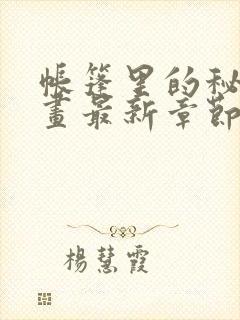 帳篷里的秘
畫最新章節
楊慧霞